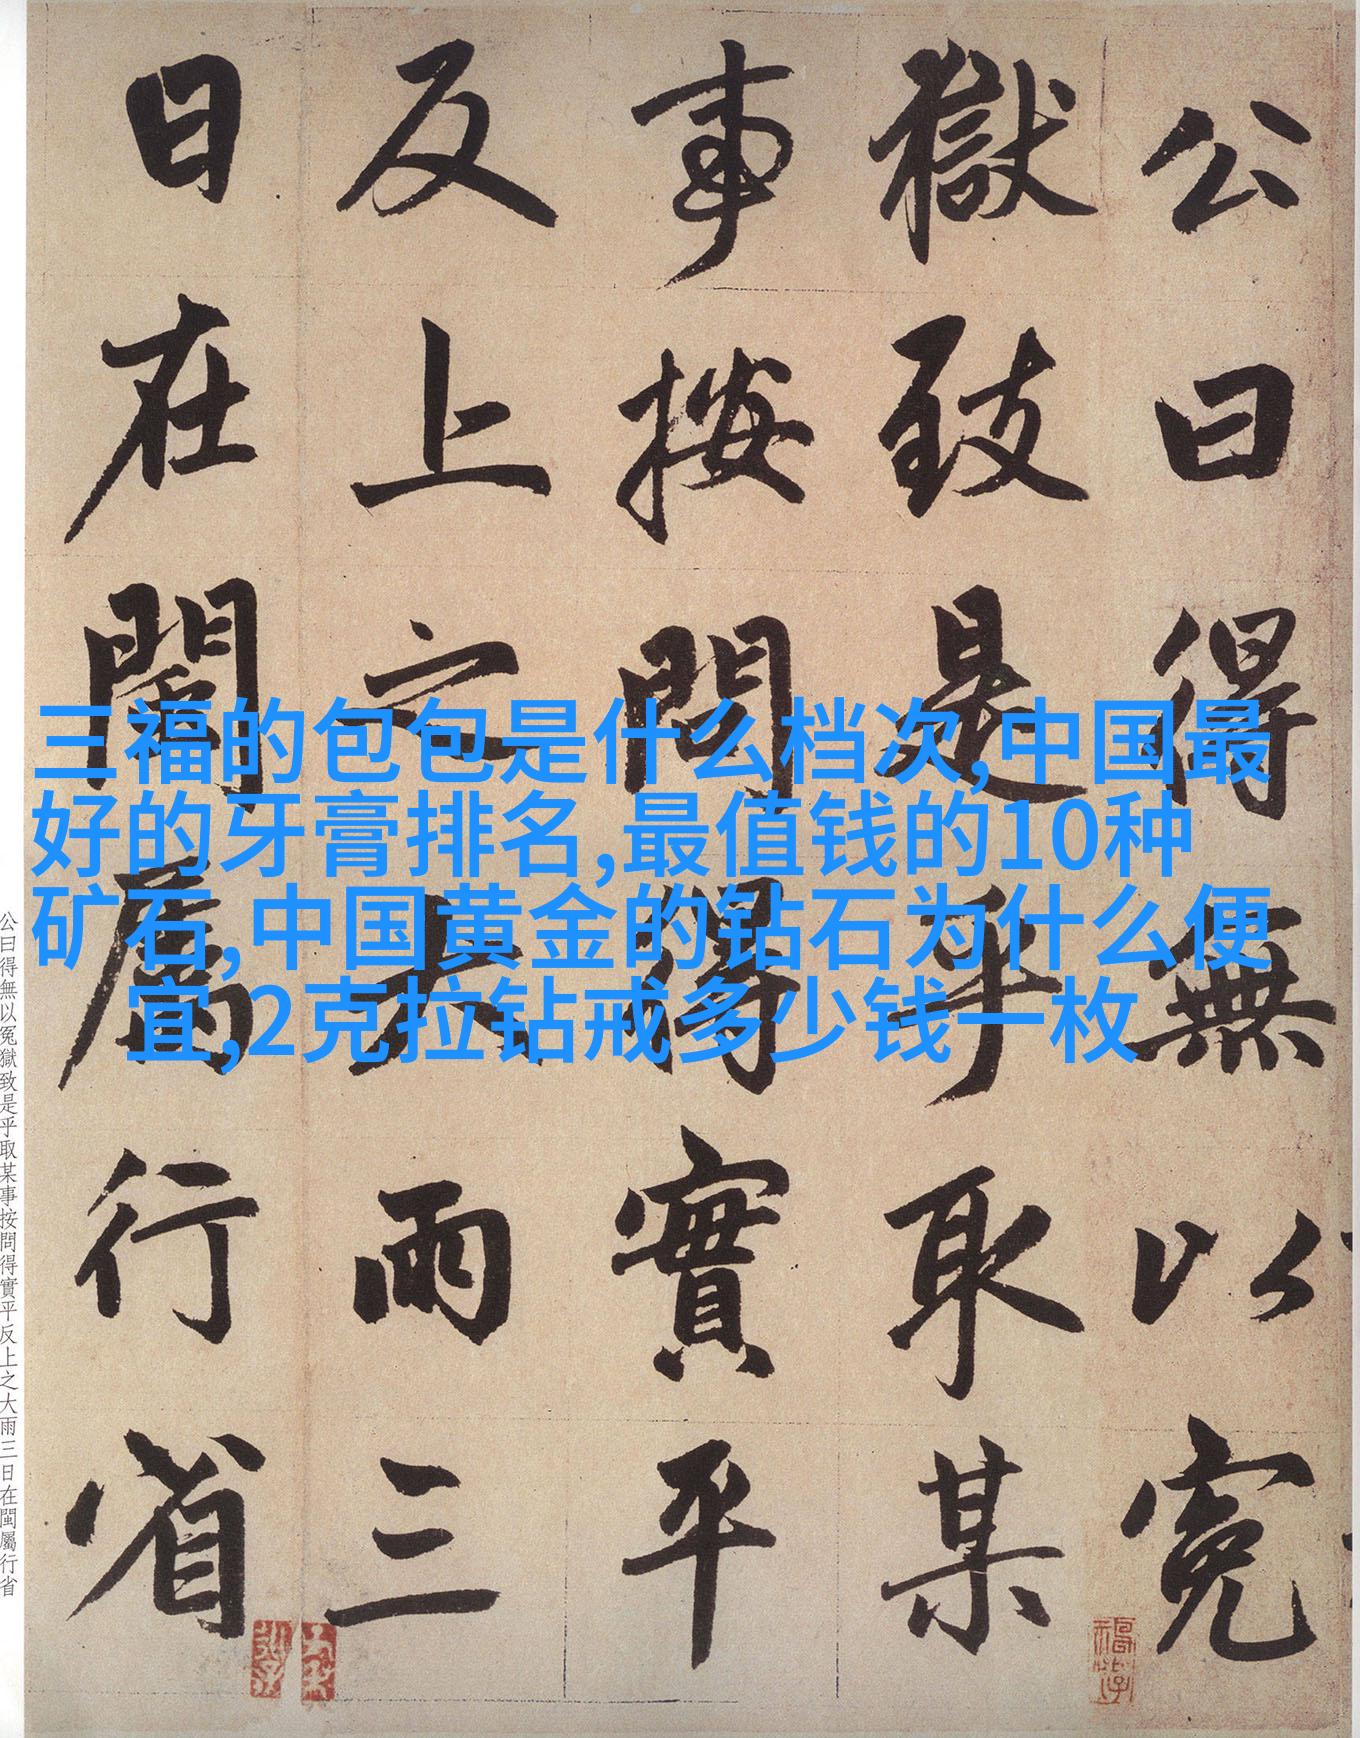 公曰得無以冤
獄致是乎取某
事按問得實平
反上之大雨三
日在閩屬行省
三福的包包是什么档次,中国最
好的牙膏排名,最值钱的10种
矿石,中国黄金的钻石为什么便
宜,2克拉钻戒多少钱一枚
公曰得無以冤獄致是乎取某事按問得實平反上之大雨三日在閩屬行省